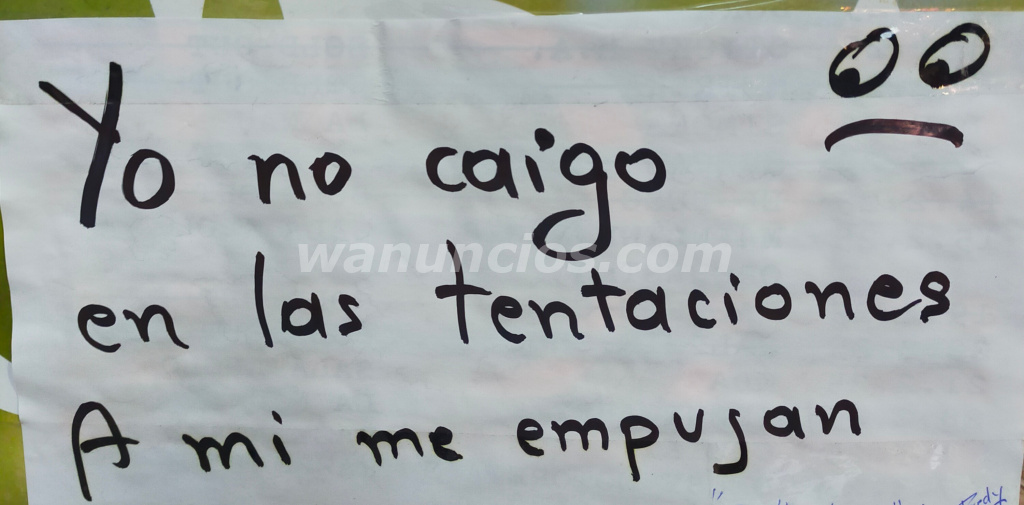 Yo no caigo
wanuncios.com
en las tentaciones
A mi me empujan